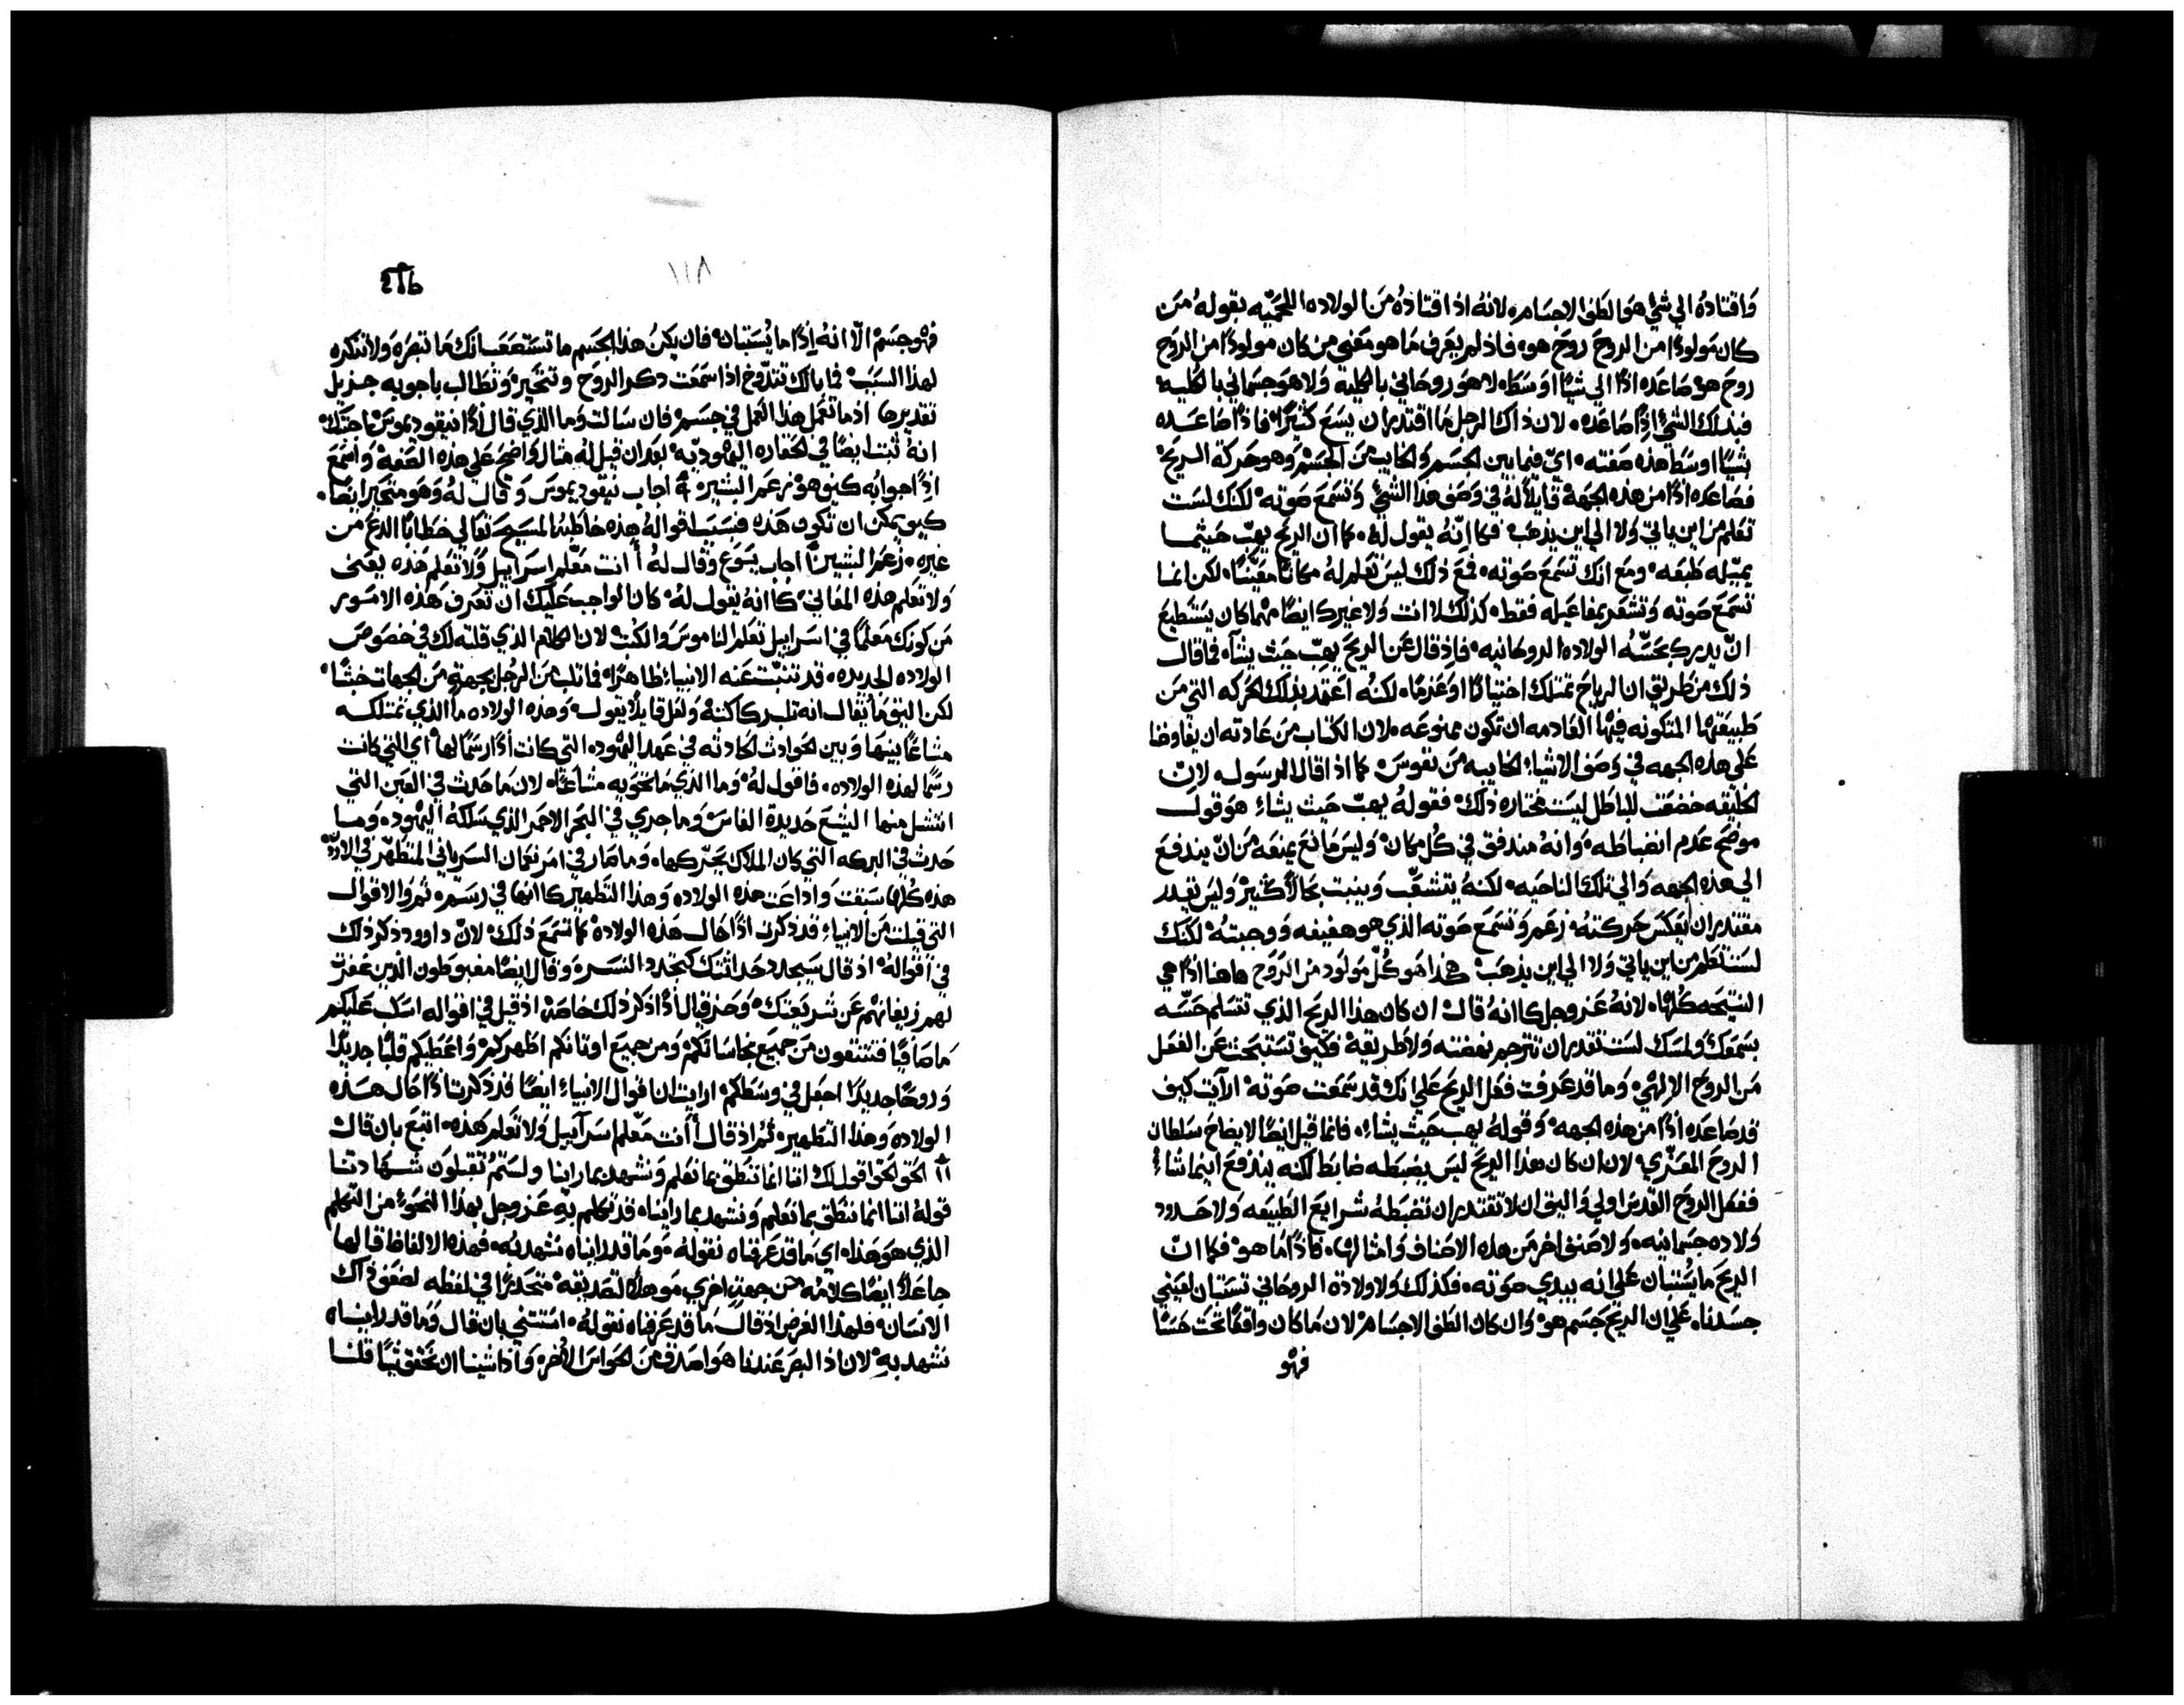 وَاقتادهُ الي شيٍ هوَ الطف الاجسَام. لانهُ اذ اقتادهُ مَن الولاده اللحميّه بقولهُ مَن
كان مَولودًا من الروحَ روحَ هو. فاذ لم يعَرف مَا هو مَعَني من كان مولودًا من الروَح
روحَ هوَ صَاعَده اذًا الي شيًا اوسَطا. لا هوَ روحَاني بالكليه وَلا هوَ جسَماني بالكليه
فبذلك الشيٍ اذًا صَاعَده. لان ذاك الرجل مَا اقتدر ان يسَمَع كثيرًا. فاذًا صَاعَده
بشيًا اوسَط هذه صَفته. ايّ فيما بين الجسَم وَالخايب مَن الجسَم وَهو حَركة الريَح
فصَاعَده اذًا من هذه الجهة قايلاً لهُ في وَصَف هذا الشيٍ وَتسَمَع صَوته لكنك لسَت
تعَلم من اين ياتي وَلا الي اين يذهَب. فكانهُ يقول لهُ. كما ان الريَح يهبّ حَيثما
يميّله طبعَه. ومَع انك تسَمَع صَوته. فمَع ذلك ليسَ تعَلم لهُ مكانًا مَعَيّنًا. لكن انما
تسَمَع صَوته وَتشعَر بمفاعَيله فقط. كذلك لا انت وَلا غيرك ايضًا مهما كان يسَتطيع
انّ يدرك بحَسّه الولاده الروحَانيه. فاذ قال عَن الريَح يهبّ حَيث يشآء فما قال
ذلك من طريق ان الرياح تمتلك اختيارًا اوعَزمًا. لكنهُ اعَتمد بذلك الحَركه التي مَن
طبيعَتها المتكونه فيها العَادمه ان تكون ممنوعَه. لان الكتاب من عَادته ان يفاوضنا
عَلي هذه الجهه في وَصَف الاشياءِ الخايبه مَن نفوسَ. كما اذا قال الرسَول. لانّ
الخليقه خضعَت للباطل ليسَت مختاره ذلك. فقولهُ يهبّ حَيث يشاءِ هوَ قول
موضح عَدم انضباطه. وَانهُ مندفق في كُل مكان. وَليسَ مَانعَ يمنعَه مَن انّ يندفع
الي هذه الجهه وَالي تلك الناحَيه. لكنهُ يتشعَّب وَينبت بحَالاً كثير. وَليسَ يقدر
مقتدر ان يعَكسَ حَركتهُ. زعَم وَتسَمَع صَوته الذي هو هفيفه وَوجبتهُ لكنك
لسَت تعَلم من اين ياتي وَلا الي اين يذهَب. هكذا هَو كُلّ مَولود من الروَح هاهنا اذًا هي
النتيجَه كُلها. لانهُ عَز وجل كانهُ قال ان كان هذا الريَح الذي تتسَلم حَسّه
بسَمعَك وَلمسَك لسَت تقدر ان تترجم بعَثته وَلا طريقه فكيف تسَتبحَث عَن الفعَل
مَن الروَح الالهي. وَما قد عَرفت فعَل الريَح عَلي انك قد سَمَعت صَوته. ارآيت كيف
قد صَاعَده اذًا من هذه الجهه. وَقولهُ يهب حَيث يشاءِ. فانما قيل ايضًا لايضاح سَلطان
الروَح المعَزّي. لان ان كان هذا الريَح ليسَ يضبَطه ضابط لكنه يندفعَ اينما شاءِ
ففعَل الروَح القدسَ اولي وَاليق ان لا تقتدر ان تضبَطهُ شرايعَ الطبيعَه وَلا حَدود
وَلاده جسَمانيه. وَلا صَنف اخر مَن هذه الاصَناف وَامثالها. فاذًا مَا هو. فكما انّ
الريَح ما يُسَتبان عَلي انه يبدي صَوته. فكذلك وَلا ولادة الروحَاني تسَتبان لعَيني
جسَدنا. عَلي ان الريَح جَسَم هوَ وَان كان الطف الاجسَام. لان مَا كان واقعًا تحَت حَسَّنا
فهو
١١٨
فهو جسَمَ الاّ انهُ اِذًا ما يُسَتبان. فان يكن هذا الجسَم ما تستصَعَب انك مَا تبصَره وَلا تنكره
لهذا السَبب. فما بالك تتدوّخ اذا سَمَعَت ذكر الروَح وتتحَير وَتطالب باجوبه جزيل
تقديرها اذ ما تعَمل هذا العَمل في جسَم. فان سَالت وَما الذي قال اذًا نيقوديموسَ اجبتك
انهُ ثبت ايضًا في الحَقاره اليهوديه. بعَد ان قيل لهُ مثال وَاضحَ عَلي هذه الصَفة وَاسمَعَ
اذًا جوابُه كيف هوَ. زعَم البشير ⁘ اجاب نيقوديموسَ وَقال لهُ وَهَو متحَير ايضًا.
كيف يمكن ان تكون هَذه. فبسَبب اقوالهُ هذه خاطبهُ المسَيحَ تعَالي خطابًا الذعَ مَن
غيره. زعَم البشير ⁘ اجاب يسَوع وَقال لهُ أأنت مَعَلّم اسَراييل وَلا تعَلم هَذه يعَني
وَلا تعَلم هذه المعَاني. كانهُ يقول لهُ. كان الواجب عَليك ان تعَرف هَذه الامَور
مَن كونك مَعَلّمًا في اسَراييل تعَلم الناموسَ وَالكتب. لان الكلام الذي قلتهُ لك في خصَوصَ
الولاده الجديده. قد تنبّت عَنه الانبياءِ ظاهرًا. فما ثلب مَن الرجُل بجهةٍ مَن الجهات خبثًا.
لكن اليق مَا يقال انه ثلب ركاكتهُ. وَلعَل قايلاً يقول. وَهذه الولاده ما الذي تمتلكه
مشاعًا بينها وَبين الحَوادث الحَادثه في عَهد اليهوده التي كانت اذًا رسَمًا لها. اي التي كانت
رسَمًا لهذه الولاده. فاقول لهُ. وَما الذي مَا تحَويه مشاعًا. لان مَا حَدث في العَين التي
انتشل منها اليشعَ حَديدة الفاسَ وَما جري في البحَر الاحمَر الذي سَلكهُ اليهود. وَما
حَدث في البركه التي كان الملاك يحَرّكها. وَما صَار في امَر نعَمان السَرياني المتطهّر في الاردنّ.
هذه كُلها سَبقت وَاذاعَت هذه الولاده وَهذا التطهير كانها في رسَم. ثمَ وَالاقوال
التي قيلت مَن الانبياءِ قد ذكرت اذًا حَال هَذه الولاده كما تسَمَع ذلك. لانّ داوود ذكر ذلك
في اقوالهُ. اذ قال سَيجدد حَداثتك كتجدد النسَر. وَقال ايضًا مغبوطون الذين غفرت
لهم زيغانهم عَن شريعَتك. وَحَزقيال اذًا ذكر ذلك خاصَة اذ قيل في اقواله اسَكب عَليكم
مَا صَافيًا فتتنقون مَن جميَع نجاسَاتكم وَمن جميَع اوثانكم اطهركم وَاعَطيكم قلبًا جديدًا
وَروحًا جديدًا اجعَل في وسَطكم. ارايت ان اقوال الانبياءِ ايضًا قد ذكرت اذًا حَال هَذه
الولاده وَهذا التطهير. ثمَ اذ قال أأنت مَعَلّم اسَرآييل وَلا تعَلم هَذه. اتبعَ بان قال
١١ الحَق الحَق اقول لك اننا انما ننطق بما نعَلم وَنشهد بما راينا ولسَتمُ تقبلون شهادتنا
قولهُ اننا انما ننطق بما نعَلم وَنشهد بما رايناه قد تكلم بهِ عَز وجل بهذا النحَو مَن التكلم
الذي هوَ هَذا. اي مَا قد عَرفناه نقولهُ. وَما قد رايناه نشهد بهُ. فهذه الالفاظ قالها
جاعَلاً ايضًا كلامهُ من جهةٍ اخري موهلاً لتصَديقه. متحَدرًا في لفظه لضعَف ذاك
الانسَان. فلهذا الغرض اذ قال مَا قد عَرفناه نقولهُ. استثني بان قال وَمَا قد رايناه
نشهد بهِ. لان اذ البصَر عَندنا هوَ اصَدق مَن الحَواسَ الاخر. وَاذا شينا ان نحَقق شيًا قلنا